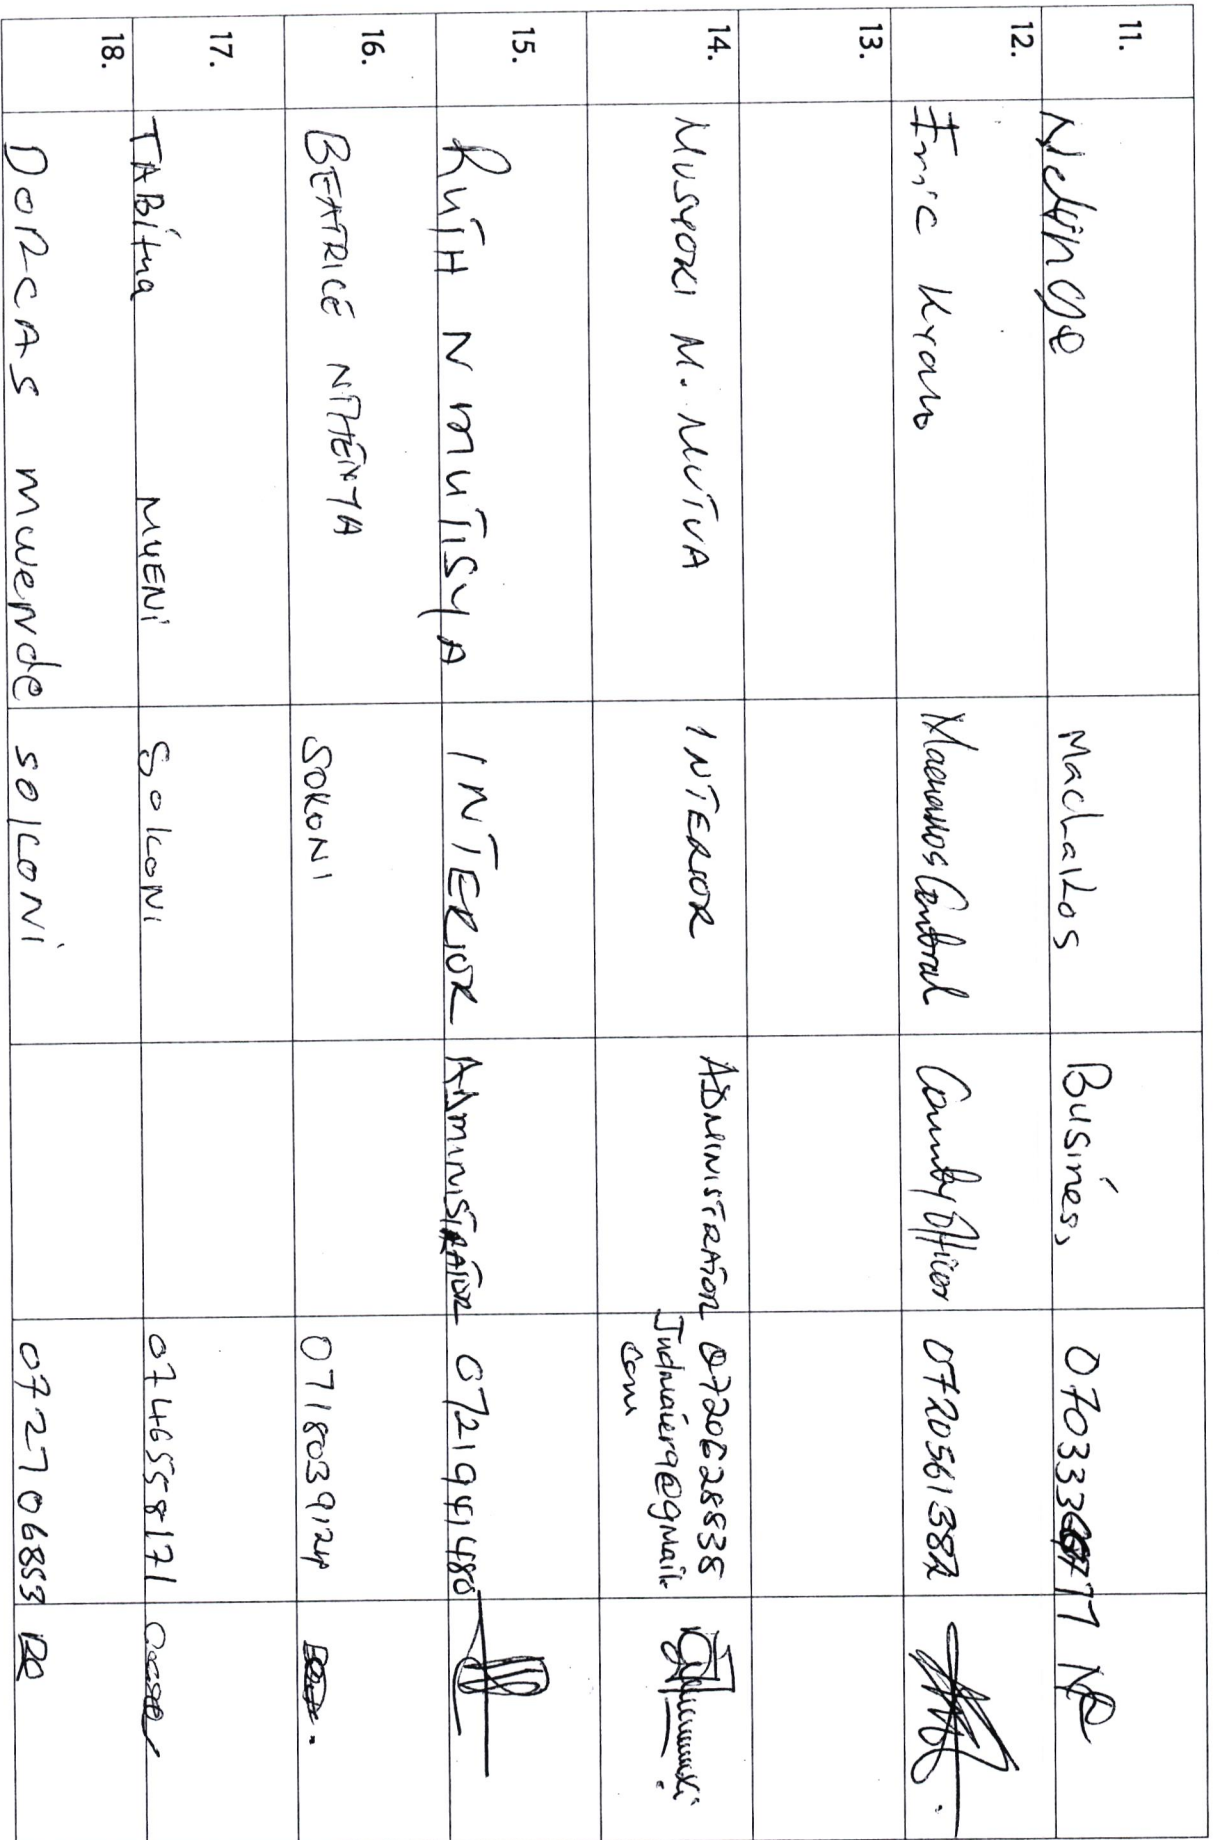 11. Ndinge Machakos Business 0703336677 NR
12. Eric Kyalo Machakos Central County Officer 0720561382
13.
14. MUSYOKI M. MUTUA INTERIOR ADMINISTRATOR 0720628838
Judmaier9@gmail.
com
15. RUTH N MUTISYA INTERIOR ADMINISTRATOR 0721941480
16. BEATRICE NTHENYA SOKONI 0718039124
17. TABitha MUENi SokoNi 0746558171
18. DORCAS mwende SOKONi 0727706853 DO